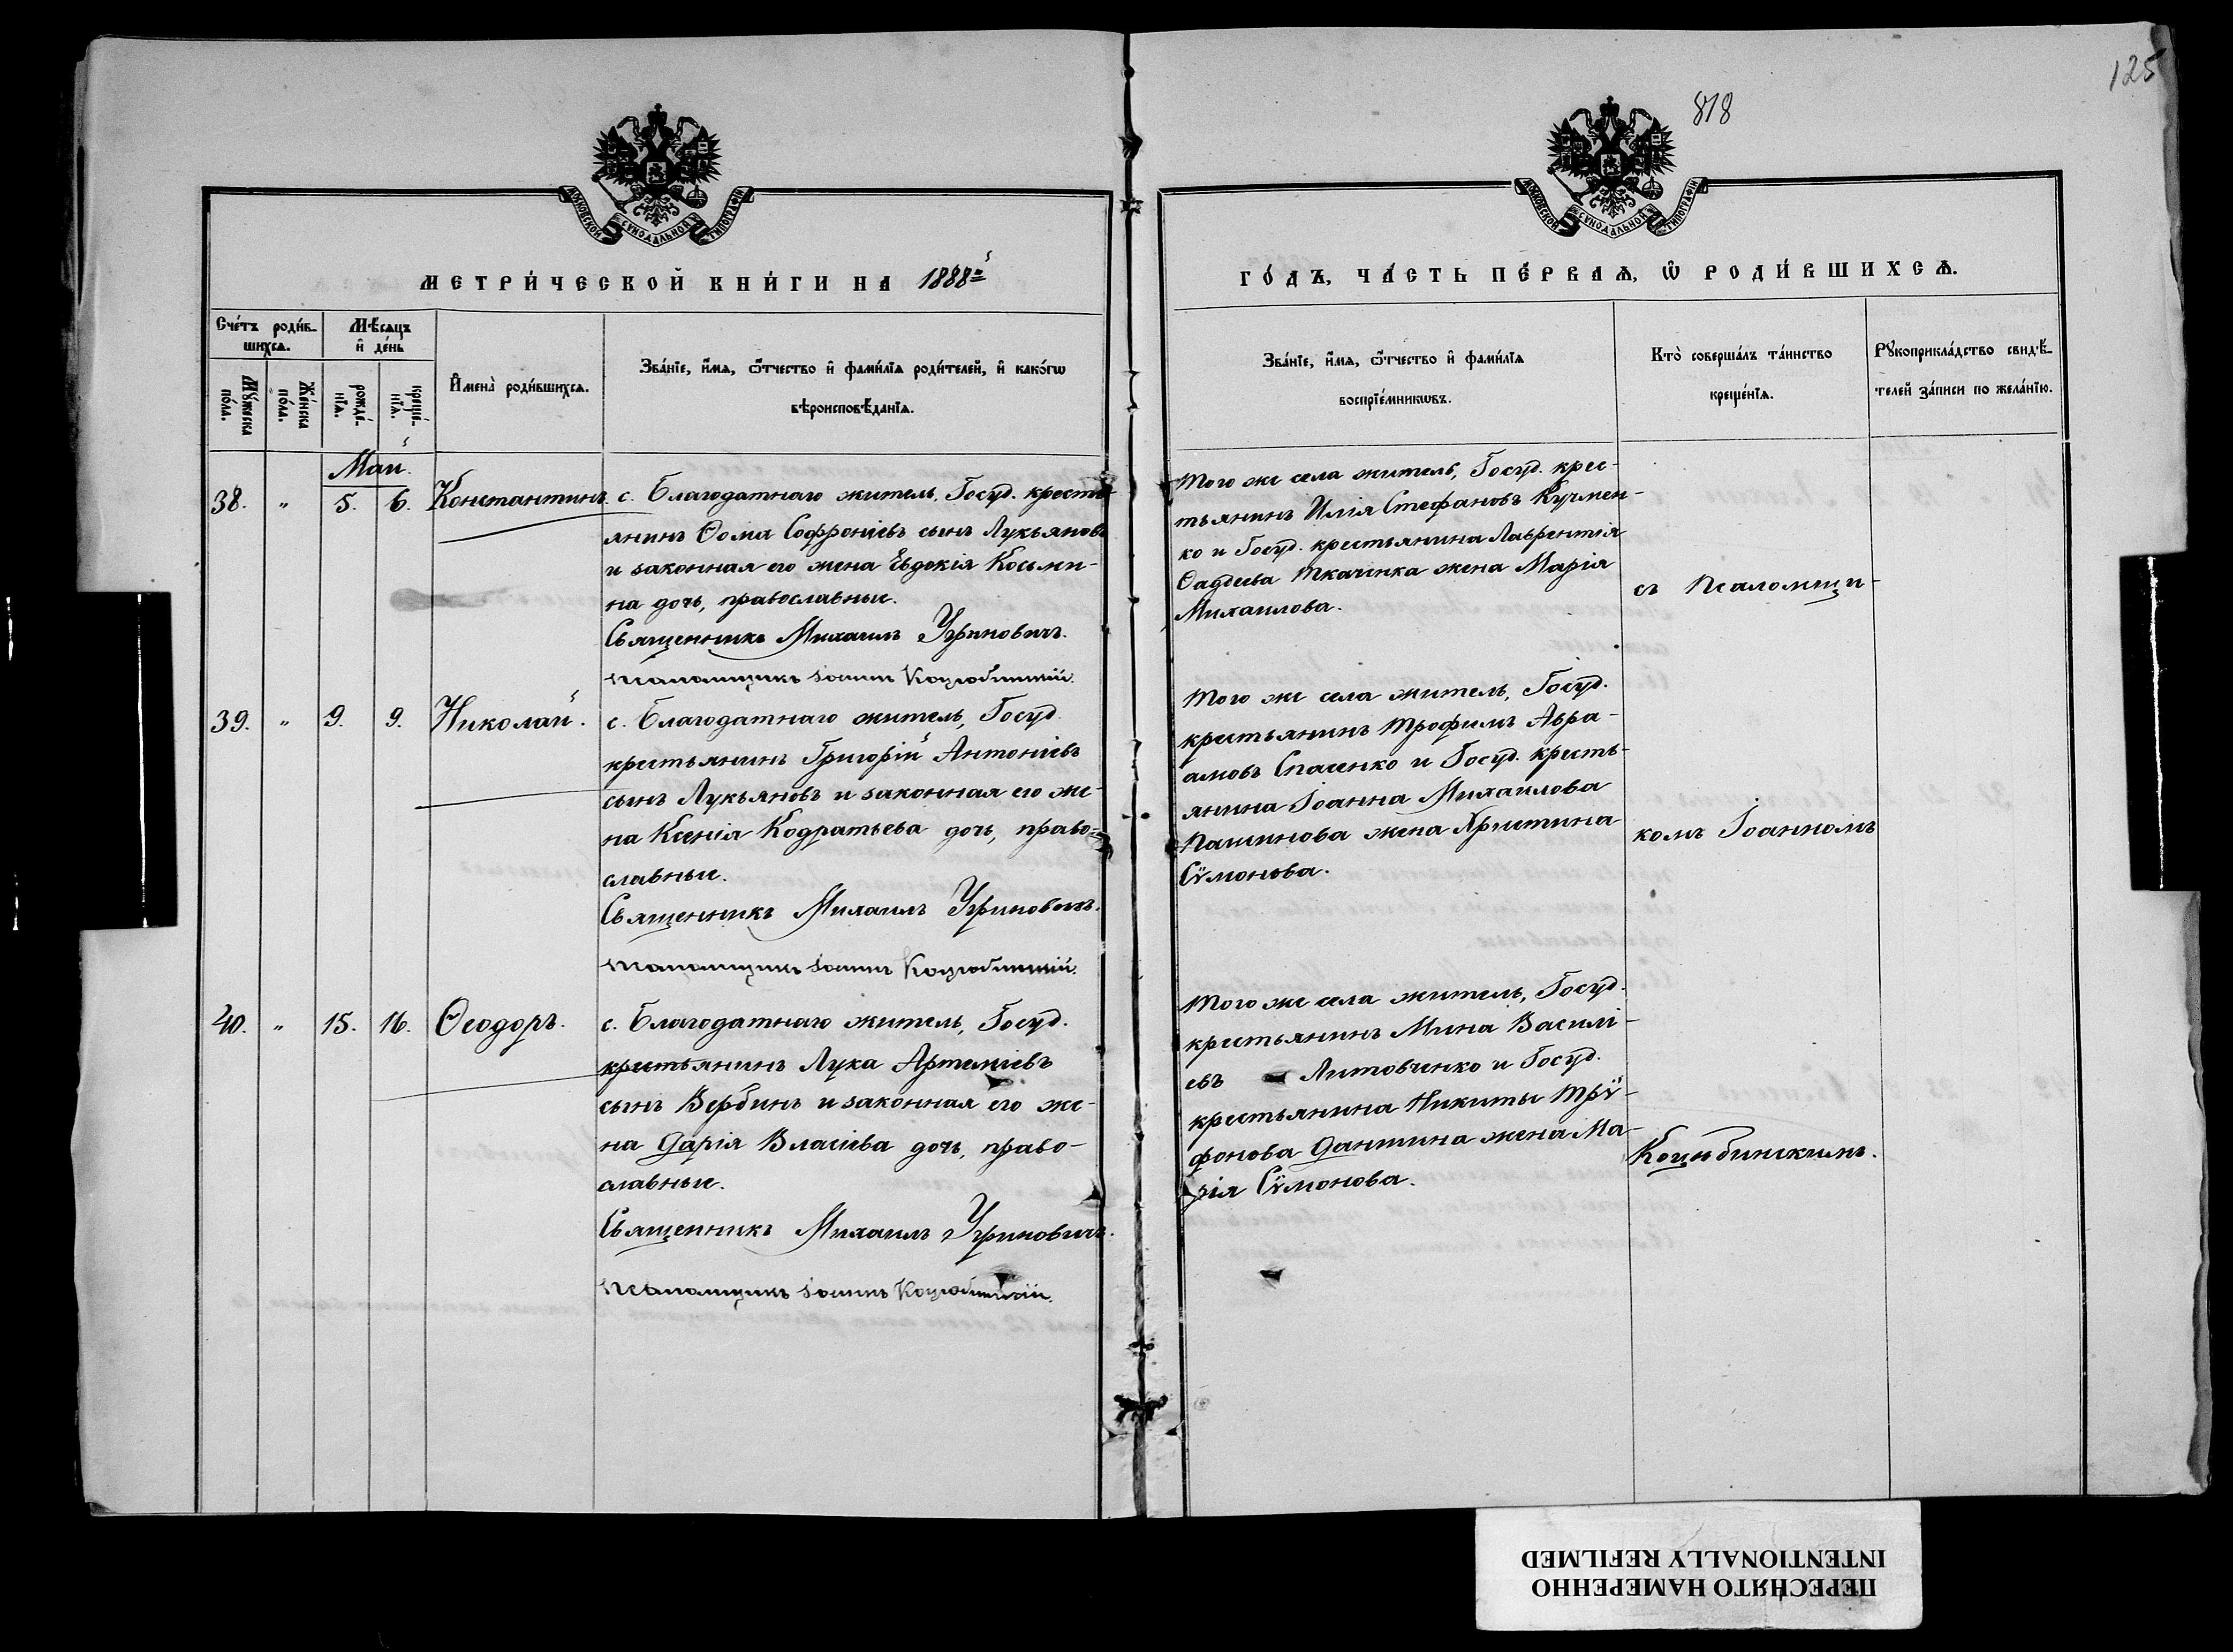 125
818
МОСКОВСКОЙ СѴНОДАЛЬНОЙ ТИПОГРАФІИ
МОСКОВСКОЙ СѴНОДАЛЬНОЙ ТИПОГРАФІИ
МЕТРИ́ЧЕСКОЙ КНИ́ГИ НА 1888й
ГО́ДЪ, ЧА́СТЬ ПЕ́РВАѦ, Ѿ РОДИ́ВШИХСѦ.
Сче́тъ роди́в-
шихсѧ.
Мꙋ́жеска
по́ла.
Же́нска
по́ла.
Мѣ́сѧцъ
и де́нь
рожде́-
нїѧ.
креще́-
нїѧ.
Имена̀ роди́вшихсѧ.
Зва́нїе, и́мѧ, ѻ҆́тчество и фами́лїѧ роди́телей, и како́гѡ
вѣроисповѣ́данїѧ.
Зва́нїе, и́мѧ, ѻ҆́тчество и фами́лїѧ
воспрїе́мникѡвъ.
Кто̀ соверша́лъ та́инство
креще́нїѧ.
Рꙋкоприкла́дство свидѣ́-
телей за́писи по жела́нїю.
Май.
38. " 5. 6. Константинъ.
с. Благодатнаго житель, Госуд. кресть-
янинъ Ѳома Софроніевъ сынъ Лукьяновъ
и законная его жена Евдокія Косьми-
на дочь, православные.
Священникъ Михаилъ Угриновичъ.
Псаломщикъ Іоаннъ Коцюбинскій.
Того же села житель, Госуд. крес-
тьянинъ Илія Стефановъ Кучмен-
ко и Госуд. крестьянина Лаврентія
Ѳаддеева Ткаченка жена Марія
Михаилова.
съ Псаломщи-
39. " 9. 9. Николай.
с. Благодатнаго житель, Госуд.
крестьянинъ Григорій Антоніевъ
сынъ Лукьяновъ и законная его же-
на Ксенія Кодратьева дочь, право-
славные.
Священникъ Михаилъ Угриновичъ.
Псаломщикъ Іоаннъ Коцюбинскій.
Того же села житель, Госуд.
крестьянинъ Трофимъ Авра-
амовъ Спасенко и Госуд. кресть-
янина Іоанна Михаилова
Пашинова жена Христина
Сѵмонова.
комъ Іоанномъ
40. " 15. 16. Ѳеодоръ.
с. Благодатнаго житель, Госуд.
крестьянинъ Лука Артеміевъ
сынъ Вербинъ и законная его же-
на Дарія Власіева дочь, право-
славные.
Священникъ Михаилъ Угриновичъ.
Псаломщикъ Іоаннъ Коцюбинскій.
Того же села житель, Госуд.
крестьянинъ Мина Василі-
евъ Литовченко и Госуд.
крестьянина Никиты Трѵ-
фонова Дантина жена Ма-
рія Сѵмонова.
Коцюбинскимъ.
ПЕРЕСНЯТО НАМЕРЕННО
INTENTIONALLY REFILMED